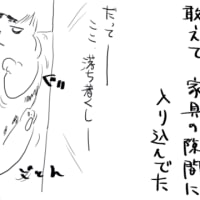 敢えて 家具の隙間に
入り込んでた
だって━━
ここ 落ち着くし━━
ぐ゛
ごとん